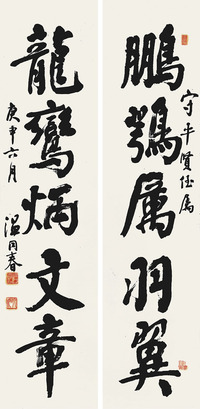 鵬鶚属羽翼
守平賢侄属
龍鸞炳文章
庚申六月
温同春